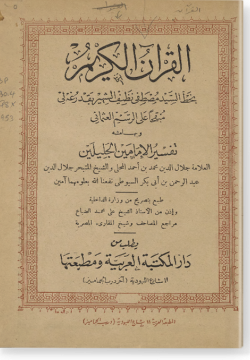 القرآن الكريم
بخط السيد مصطفى نظيف الشهير بقدرغه لى
على الرسم العثمانى
وبهامشه
تفسير الإمامين الجليلين
العلامة جلال الدين محمد بن أحمد المحلى والشيخ المتبحر جلال الدين
عبد الرحمن بن أبى بكر السيوطى نفعنا الله بعلومهما آمين
طبع بتصريح من وزارة الداخلية
وإذن من الأستاذ الشيخ على محمد الضباع
مراجع المصاحف وشيخ المقارئ المصرية
يطلب من
دار المكتبة العربية ومطبعتها